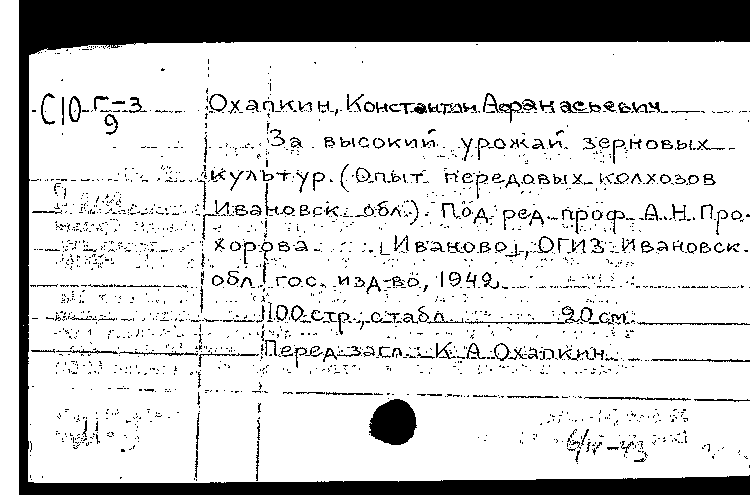 С10 Г-3
9
Охапкин, Константин Афанасьевич
За высокий урожай зерновых
культур. (Опыт передовых колхозов
Ивановск. обл.). Под ред. проф. А.Н. Про-
хорова. [Иваново], ОГИЗ. Ивановск.
обл. гос. изд-во, 1942.
100 стр., с табл. 20 см.
Перед загл.: К. А. Охапкин.
6/IV-43